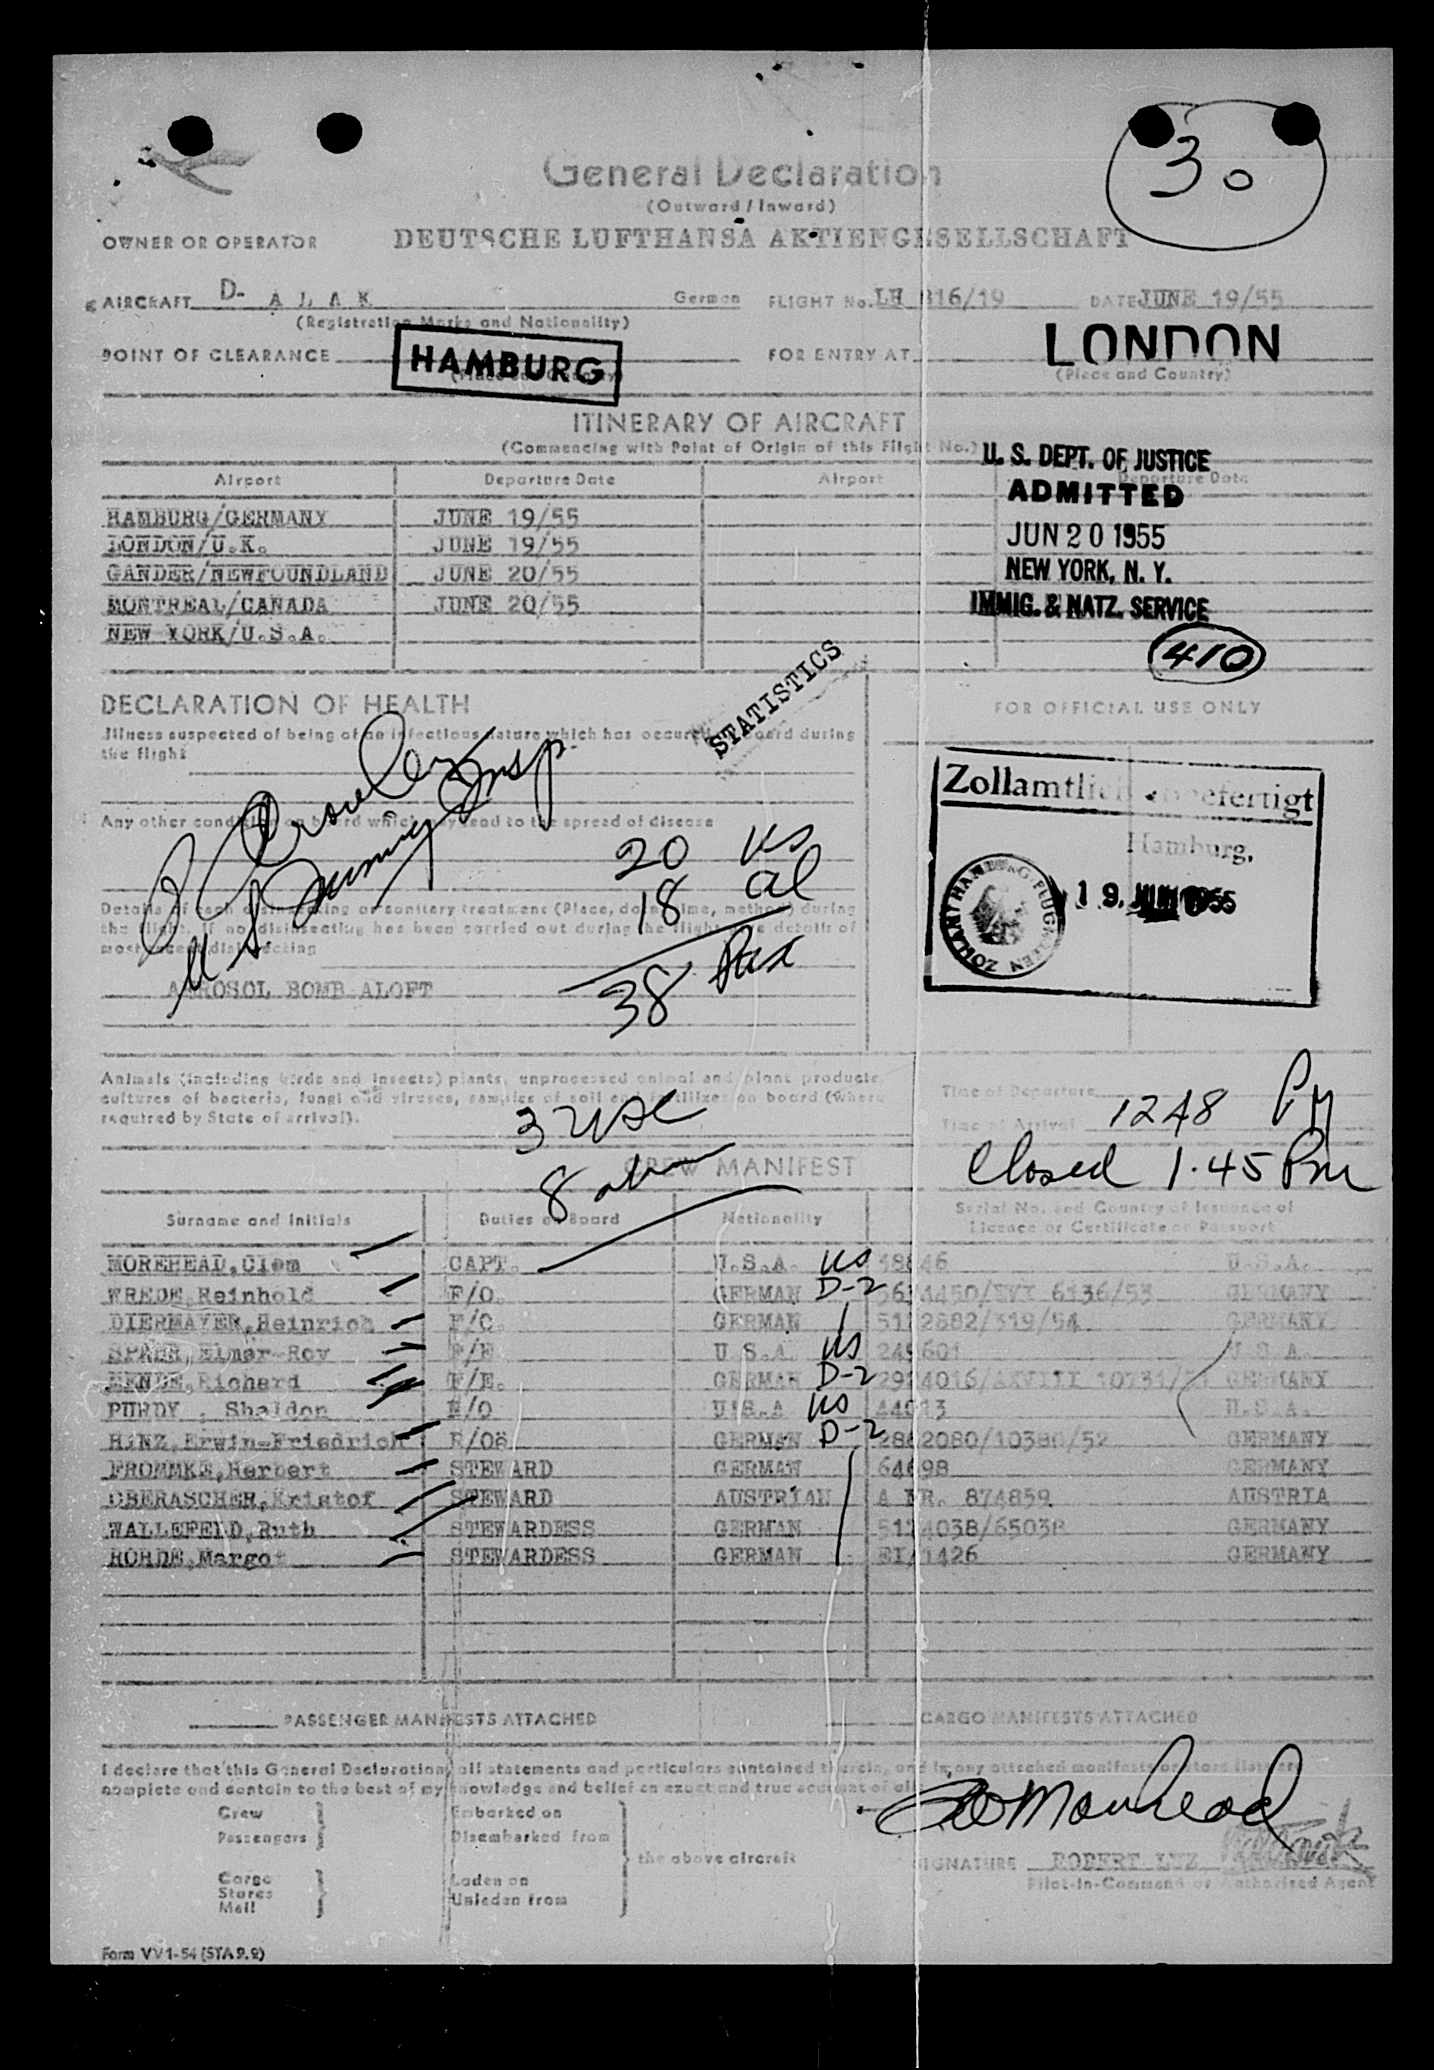 30
General Declaration
(Outward / Inward)
OWNER OR OPERATOR DEUTSCHE LUFTHANSA AKTIENGESELLSCHAFT
AIRCRAFT D- A L A K German FLIGHT No. LH 816/19 DATE JUNE 19/55
(Registration Marks and Nationality)
POINT OF CLEARANCE HAMBURG FOR ENTRY AT LONDON
(Place and Country) (Place and Country)
ITINERARY OF AIRCRAFT
(Commencing with Point of Origin of this Flight No.)
U. S. DEPT. OF JUSTICE
Airport Departure Date Airport Departure Date
ADMITTED
HAMBURG/GERMANY JUNE 19/55
JUN 20 1955
LONDON/U.K. JUNE 19/55
GANDER/NEWFOUNDLAND JUNE 20/55
NEW YORK, N. Y.
MONTREAL/CANADA JUNE 20/55
IMMIG. & NATZ. SERVICE
NEW YORK/U.S.A.
410
STATISTICS
DECLARATION OF HEALTH
FOR OFFICIAL USE ONLY
Illness suspected of being of an infectious nature which has occurred on board during
the flight
Zollamtlich abgefertigt
Hamburg,
19. JUNI 1955
Any other condition on board which may lead to the spread of disease
20 us
18 al
38 Pax
Details of each disinsecting or sanitary treatment (Place, date, time, method) during
the flight. If no disinsecting has been carried out during the flight give details of
most recent disinsecting
AEROSOL BOMB ALOFT
Animals (including birds and insects) plants, unprocessed animal and plant products
cultures of bacteria, fungi and viruses, samples of soil and fertilizer on board (where
required by State of arrival).
Time of Departure
Time of Arrival 1248 Pm
Closed 1.45 Pm
3 usc
8 alien
CREW MANIFEST
Surname and Initials Duties on Board Nationality Serial No. and Country of Issuance of
Licence or Certificate or Passport
MOREHEAD,Clem CAPT. U.S.A. US 48846 U.S.A.
WREDE,Reinhold F/O. GERMAN D-2 6136/53 GERMANY
DIERMAYER,Heinrich F/O. GERMAN 5112882/319/54 GERMANY
Elmer-Roy F/E U.S.A. US 249601 U.S.A.
Richard F/E. GERMAN D-2 GERMANY
PURDY , Sheldon U.S.A US 44013 U.S.A.
HINZ,Erwin-Friedrich GERMAN D-2 2862080/10380/52 GERMANY
FROMMKE,Herbert STEWARD GERMAN 64698 GERMANY
OBERASCHER,Kristof STEWARD AUSTRIAN A NR. 874859 AUSTRIA
WALLEFELD,Ruth STEWARDESS GERMAN GERMANY
ROHDE,Margot STEWARDESS GERMAN EI/1426 GERMANY
PASSENGER MANIFESTS ATTACHED CARGO MANIFESTS ATTACHED
I declare that this General Declaration, all statements and particulars contained therein, and in any attached manifests or stores lists are
complete and contain to the best of my knowledge and belief an exact and true account of all
Crew Embarked on
Passengers Disembarked from
the above aircraft
Cargo Laden on
Stores Unladen from
Mail
SIGNATURE ROBERT LUZ
Pilot-in-Command or Authorised Agent
Form VV1-54 (STA 9.2)